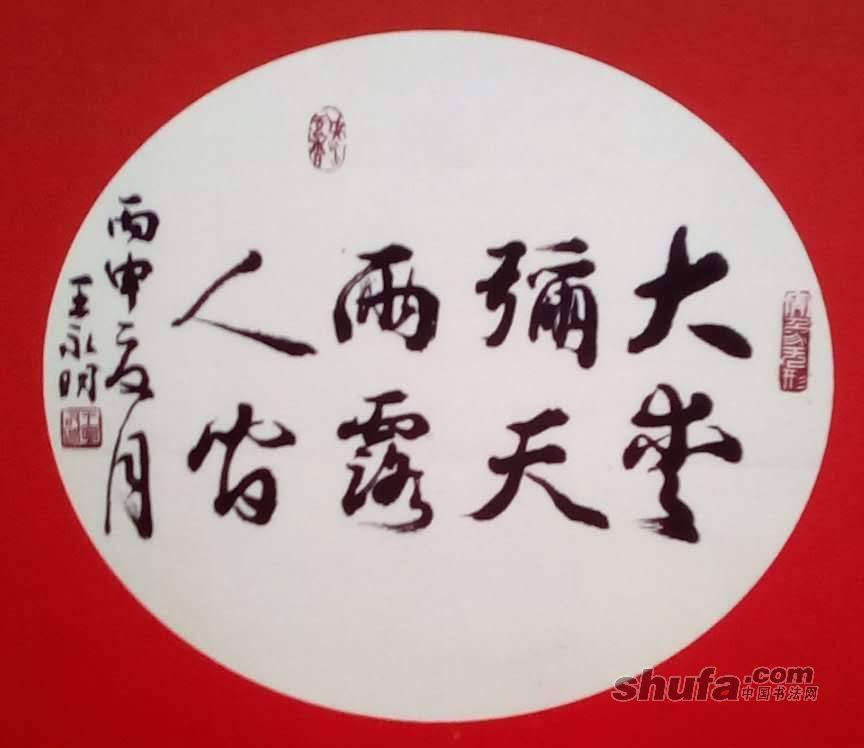 大愛
彌天
雨露
人皆
丙申夏月
王永明
shufa.com
中国书法网